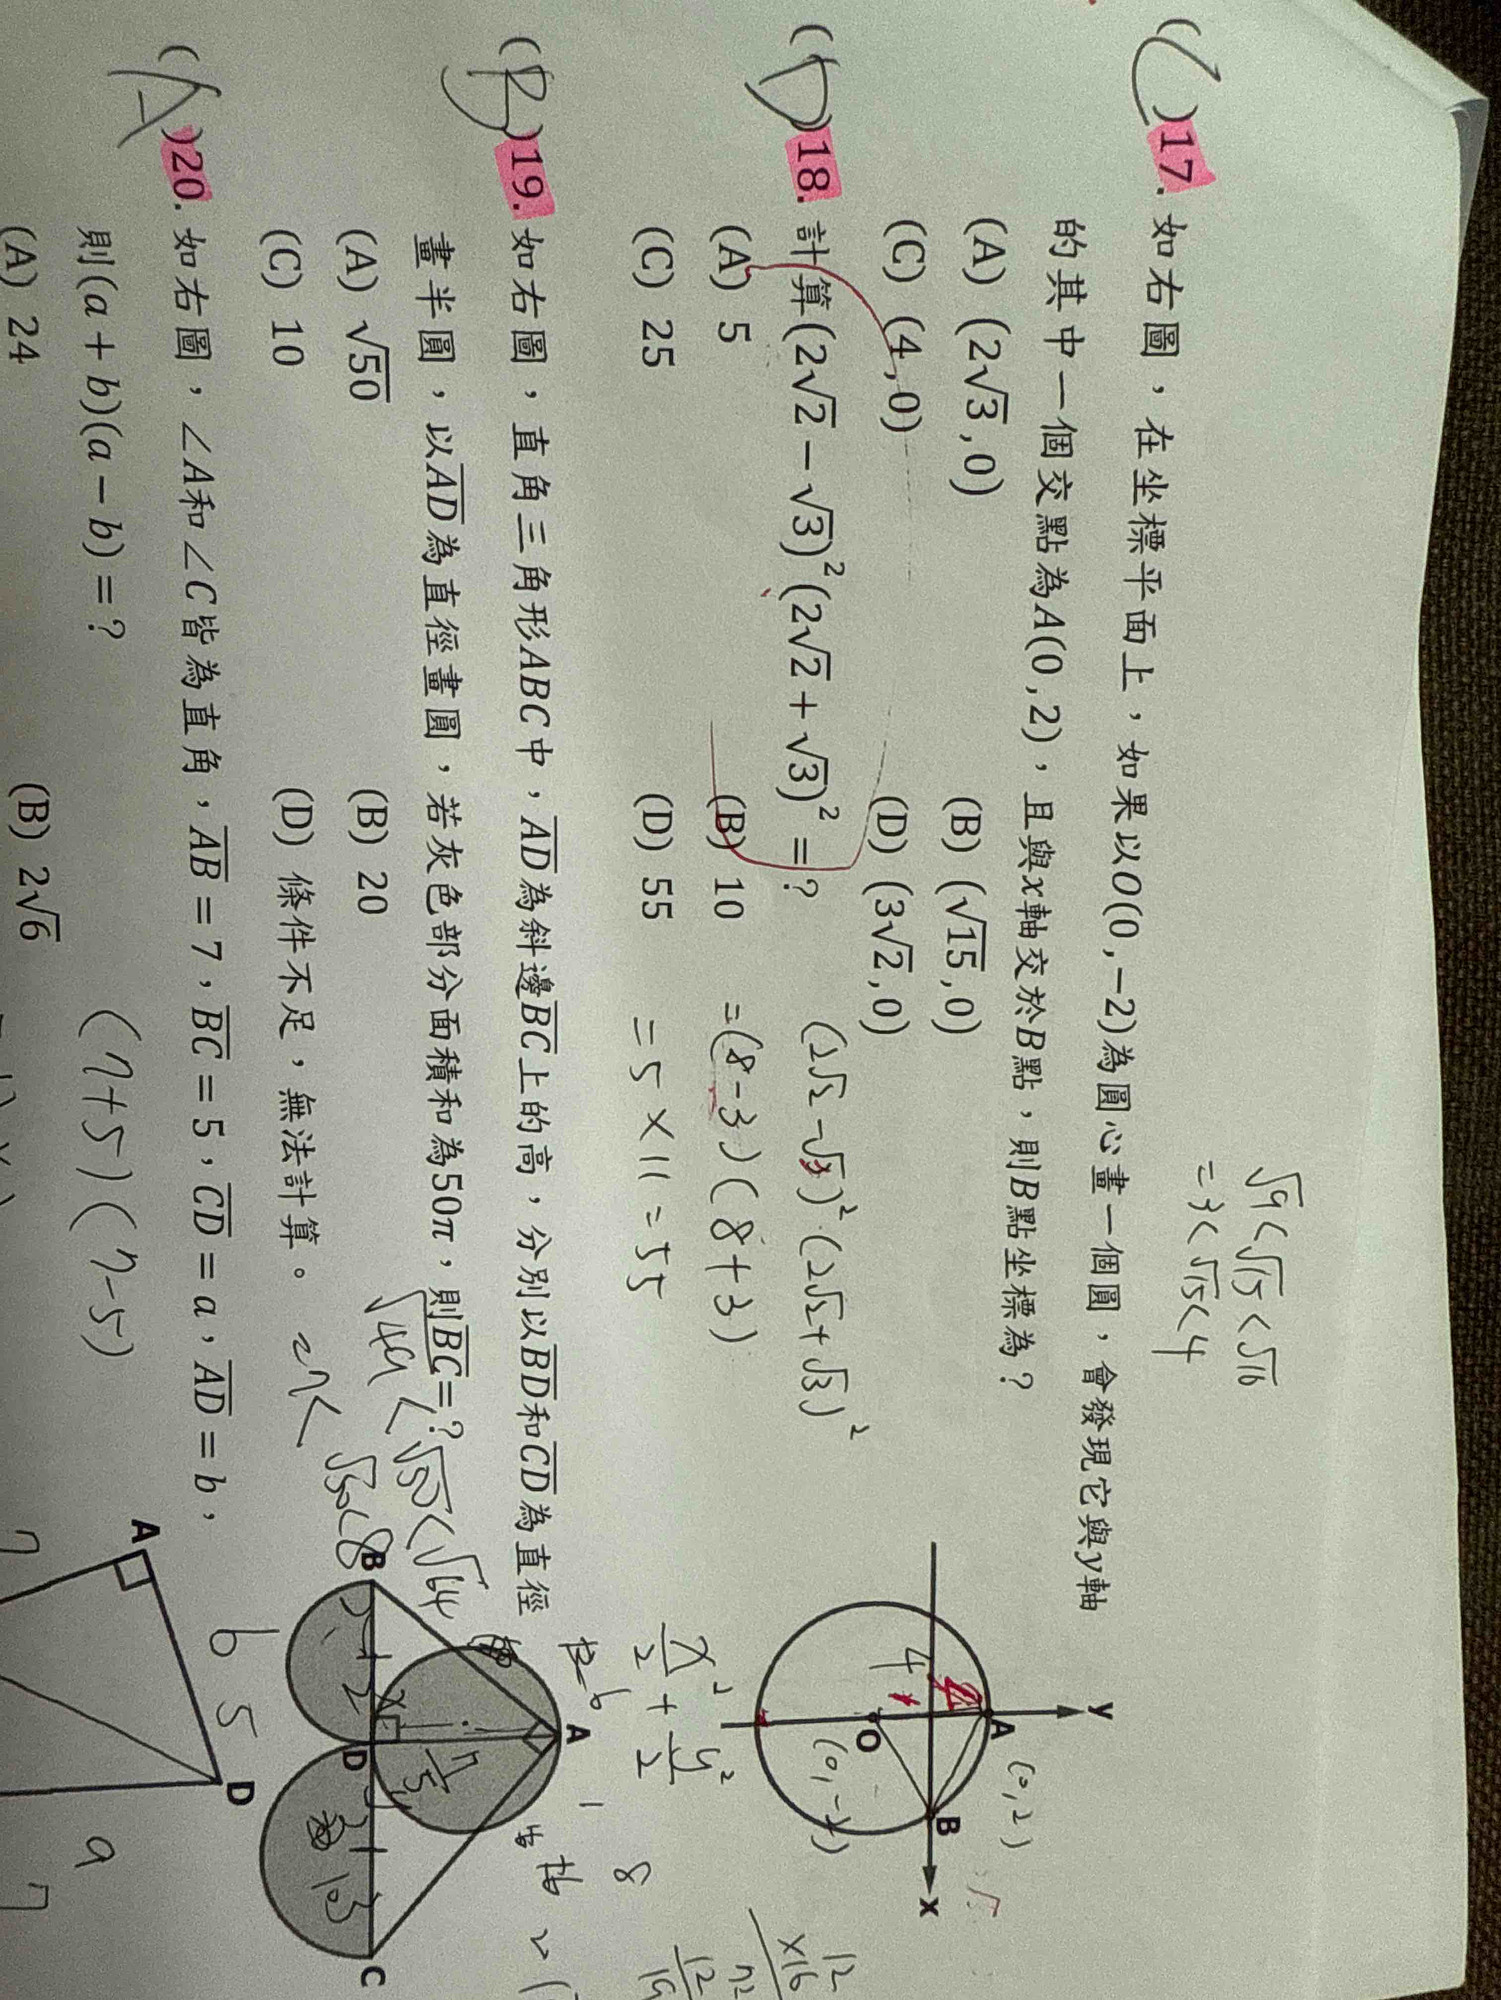 (C)17. 如右圖，在坐標平面上，如果以O(0,−2)為圓心畫一個圓，會發現它與y軸
的其中一個交點為A(0,2)，且與x軸交於B點，則B點坐標為？
(A) (2√3,0) (B) (√15,0)
(C) (4,0) (D) (3√2,0)
√9<√15<√16
=3<√15<4
y
A (0,2)
4
2
O
(0,-2)
B
x
(D)18. 計算(2√2−√3)²(2√2+√3)²=?
(A) 5 (B) 10
(C) 25 (D) 55
(2√2−√3)²·(2√2+√3)²
=(8−3)(8+3)
=5×11=55
(B)19. 如右圖，直角三角形ABC中，AD為斜邊BC上的高，分別以BD和CD為直徑
畫半圓，以AD為直徑畫圓，若灰色部分面積和為50π，則BC=?
(A) √50 (B) 20
(C) 10 (D) 條件不足，無法計算。
√49<√50<√64
=7<√50<8
A
B
D
C
(A)20. 如右圖，∠A和∠C皆為直角，AB=7，BC=5，CD=a，AD=b，
則(a+b)(a−b)=?
(A) 24 (B) 2√6
(7+5)(7−5)
A
b
5
D
a
7
7